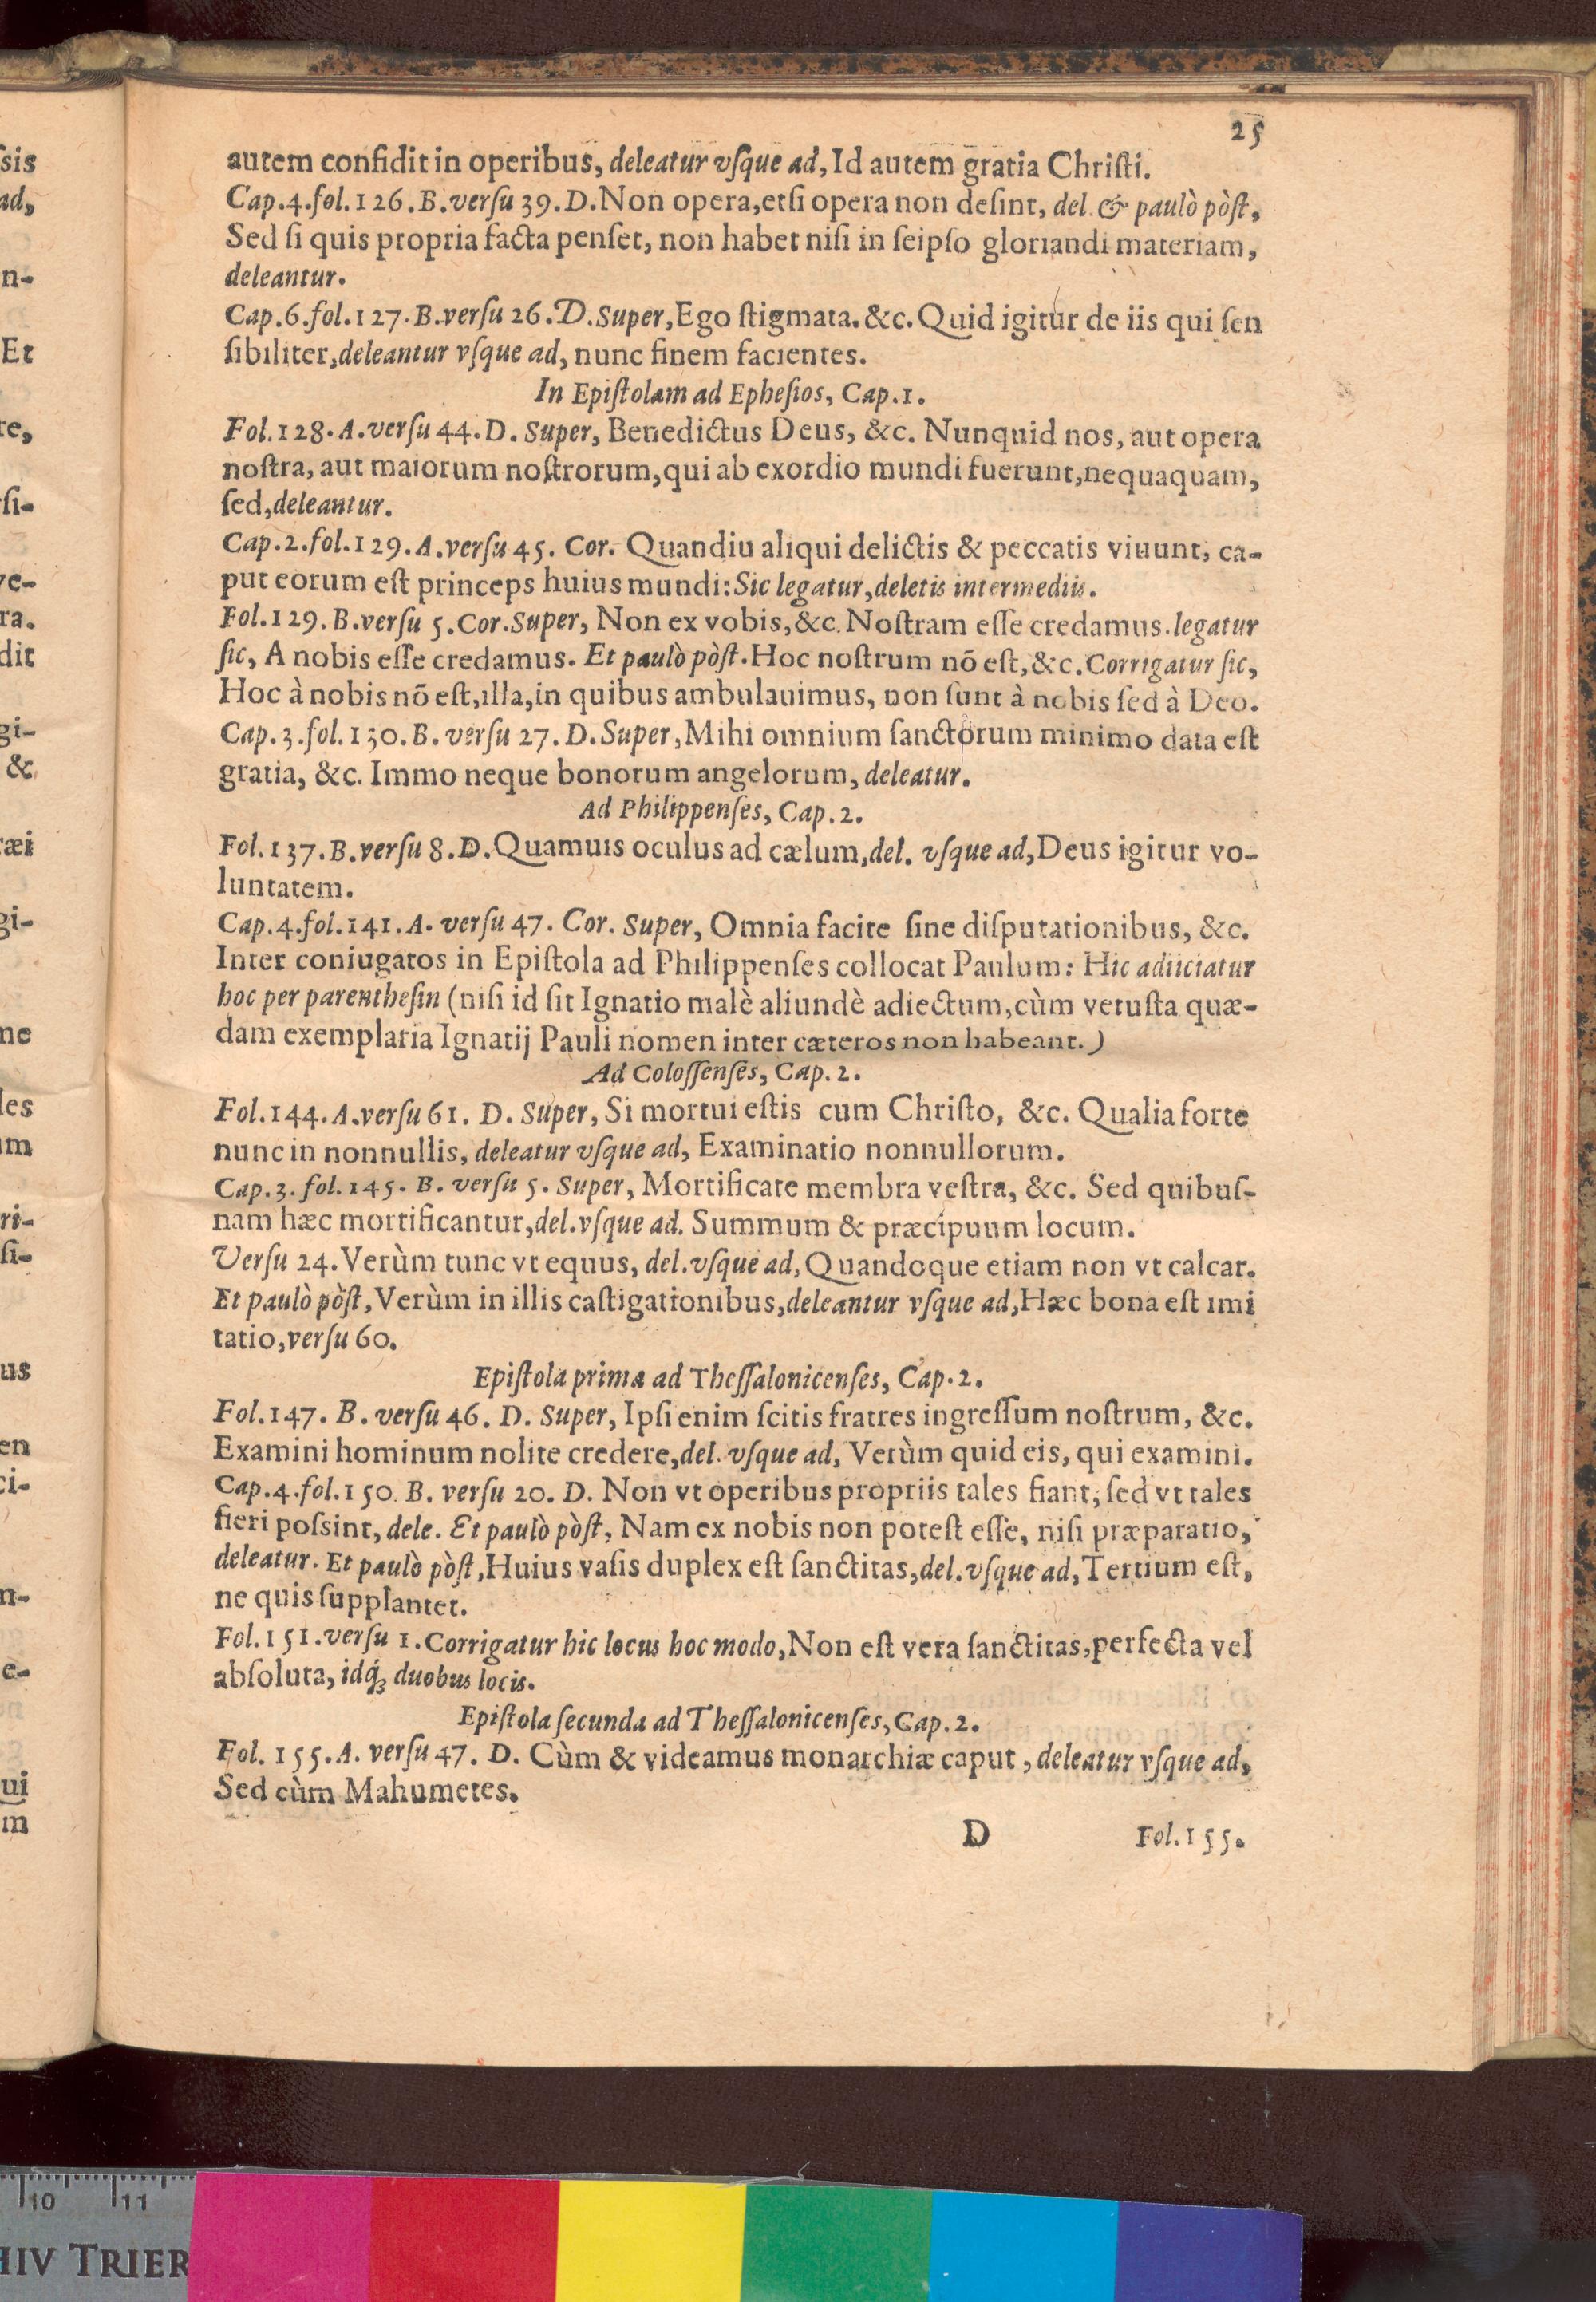 25
autem confidit in operibus, deleatur vſque ad, Id autem gratia Chriſti.
Cap.4.fol.126.B.verſu 39.D.Non opera,etſi opera non deſint, del. & paulò pòſt,
Sed ſi quis propria facta penſet, non habet niſi in ſeipſo gloriandi materiam,
deleantur.
Cap.6.fol.127.B.verſu 26.D.Super,Ego ſtigmata.&c.Quid igitur de iis qui ſen
ſibiliter,deleantur vſque ad, nunc finem facientes.
In Epiſtolam ad Epheſios, Cap.1.
Fol.128.A.verſu 44.D. Super, Benedictus Deus, &c. Nunquid nos, aut opera
noſtra, aut maiorum noſtrorum,qui ab exordio mundi fuerunt,nequaquam,
ſed,deleantur.
Cap.2.fol.129.A.verſu 45. Cor. Quandiu aliqui delictis & peccatis viuunt, ca-
put eorum eſt princeps huius mundi:Sic legatur,deletis intermediis.
Fol.129.B.verſu 5.Cor.Super, Non ex vobis,&c. Noſtram eſſe credamus.legatur
ſic, A nobis eſſe credamus. Et paulò pòſt.Hoc noſtrum nõ eſt,&c.Corrigatur ſic,
Hoc à nobis nõ eſt,illa,in quibus ambulauimus, non ſunt à nobis ſed à Deo.
Cap.3.fol.130.B.verſu 27.D.Super,Mihi omnium ſanctorum minimo data eſt
gratia, &c. Immo neque bonorum angelorum, deleatur.
Ad Philippenſes, Cap.2.
Fol.137.B.verſu 8.D.Quamuis oculus ad cælum,del. vſque ad,Deus igitur vo-
luntatem.
Cap.4.fol.141.A. verſu 47. Cor. Super, Omnia facite ſine diſputationibus, &c.
Inter coniugatos in Epiſtola ad Philippenſes collocat Paulum: Hic adiiciatur
hoc per parentheſin (niſi id ſit Ignatio malè aliundè adiectum,cùm vetuſta quæ-
dam exemplaria Ignatij Pauli nomen inter cæteros non habeant.)
Ad Coloſſenſes, Cap.2.
Fol.144.A.verſu 61. D. Super, Si mortui eſtis cum Chriſto, &c. Qualia forte
nunc in nonnullis, deleatur vſque ad, Examinatio nonnullorum.
Cap.3.fol.145.B.verſu 5. Super, Mortificate membra veſtra, &c. Sed quibuſ-
nam hæc mortificantur,del.vſque ad. Summum & præcipuum locum.
Verſu 24.Verùm tunc vt equus, del.vſque ad,Quandoque etiam non vt calcar.
Et paulò pòſt,Verùm in illis caſtigationibus,deleantur vſque ad,Hæc bona eſt imi
tatio,verſu 60.
Epiſtola prima ad Theſſalonicenſes, Cap.2.
Fol.147. B. verſu 46. D. Super, Ipſi enim ſcitis fratres ingreſſum noſtrum, &c.
Examini hominum nolite credere,del. vſque ad, Verùm quid eis, qui examini.
Cap.4.fol.150. B. verſu 20. D. Non vt operibus propriis tales fiant, ſed vt tales
fieri poſsint, dele. Et paulò pòſt, Nam ex nobis non poteſt eſſe, niſi præparatio,
deleatur. Et paulò pòſt,Huius vaſis duplex eſt ſanctitas,del.vſque ad,Tertium eſt,
ne quis ſupplantet.
Fol.151.verſu 1.Corrigatur hic locus hoc modo,Non eſt vera ſanctitas,perfecta vel
abſoluta, idq́ꝫ duobus locis.
Epiſtola ſecunda ad Theſſalonicenſes,Cap.2.
Fol. 155.A. verſu 47. D. Cùm & videamus monarchiæ caput, deleatur vſque ad,
Sed cùm Mahumetes.
D Fol.155.
ſsis
ad,
n-
Et
re,
ſi-
ve-
ra.
dit
gi-
&
æi
gi-
ne
les
m
ri-
ſi-
us
en
ci-
n-
e-
ui
m
10 11
HIV TRIER